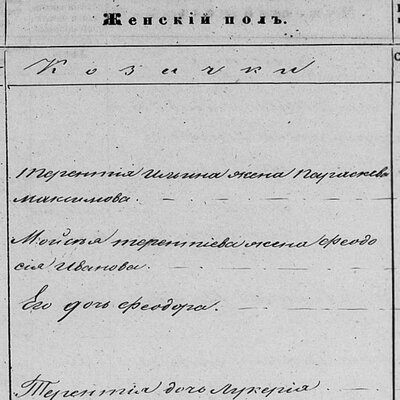 Женскій полъ.
Козачки
Терентія Ильина жена Параскева
Максимова.
Мойсѣя Терентіева жена Ѳеодо
сія Иванова.
Его дочь Ѳеодора.
Терентія дочь Лукерія